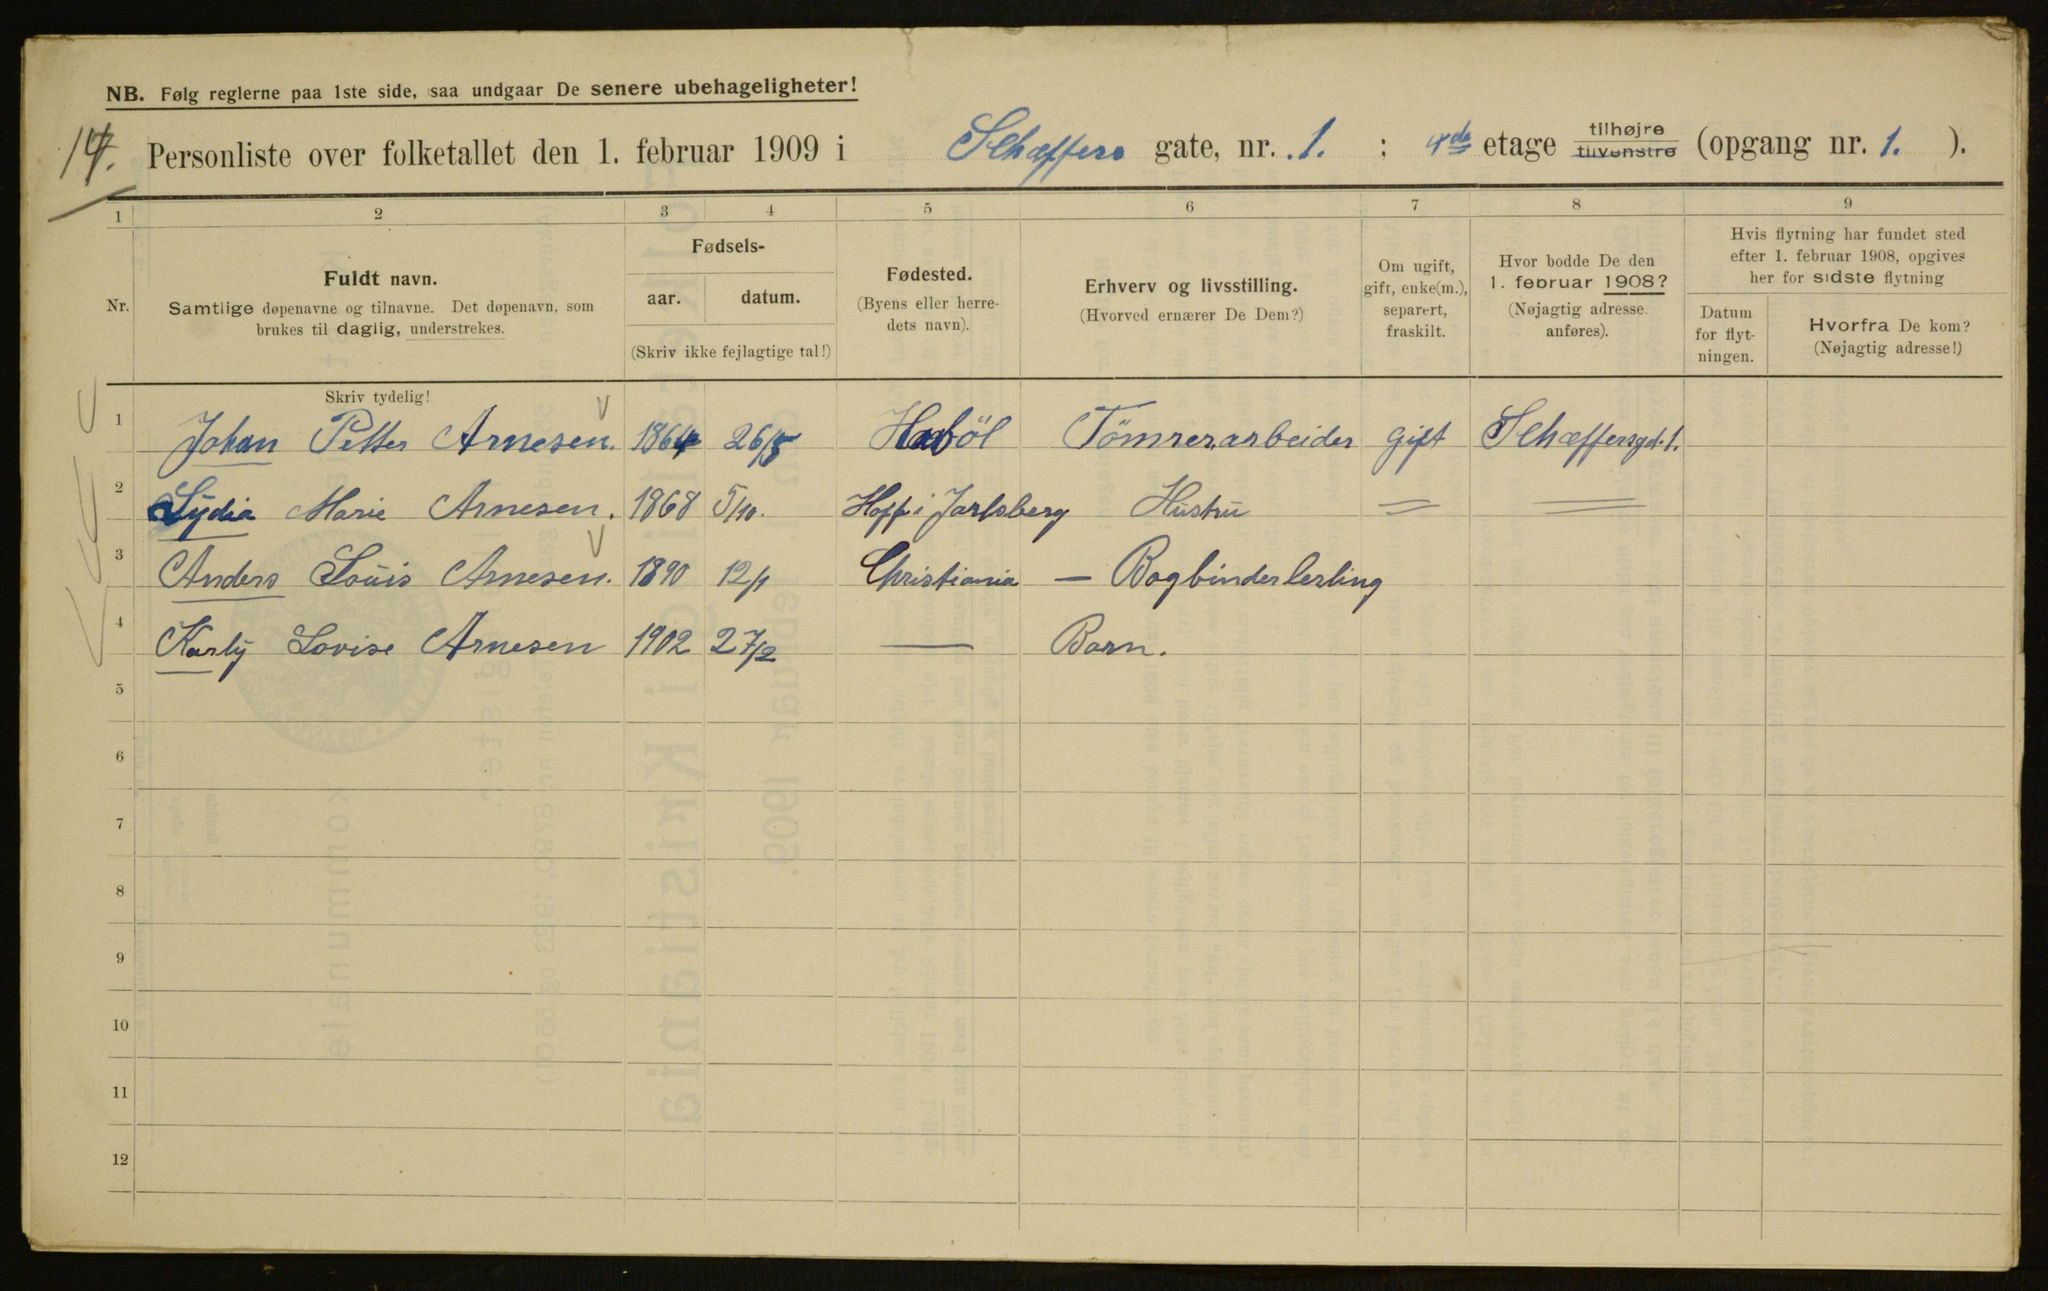 NB. Følg reglerne paa 1ste side, saa undgaar De senere ubehageligheter!
14.
Personliste over folketallet den 1. februar 1909 i Schæffers gate, nr. 1. ; 4de etage tilhøjre tilvenstre (opgang nr. 1. ).
1 2 3 4 5 6 7 8 9
Nr.
Fuldt navn.
Samtlige døpenavne og tilnavne. Det døpenavn, som
brukes til daglig, understrekes.
Fødsels-
aar. datum.
(Skriv ikke fejlagtige tal!)
Fødested.
(Byens eller herre-
dets navn).
Erhverv og livsstilling.
(Hvorved ernærer De Dem?)
Om ugift,
gift, enke(m.),
separert,
fraskilt.
Hvor bodde De den
1. februar 1908?
(Nøjagtig adresse
anføres).
Hvis flytning har fundet sted
efter 1. februar 1908, opgives
her for sidste flytning
Datum
for flyt-
ningen.
Hvorfra De kom?
(Nøjagtig adresse!)
Skriv tydelig!
1 Johan Petter Arnesen. 1864 26/5 Haaböl Tömrerarbeider gift Schæffersgt. 1.
2 Lydia Marie Arnesen. 1868 5/10. Hoff i Jarlsberg Hustru = =
3 Anders Louis Arnesen. 1890 12/1 Christiania — Bogbinderlerling
4 Karly Lovise Arnesen 1902 27/2 — Barn.
5
6
7
8
9
10
11
12